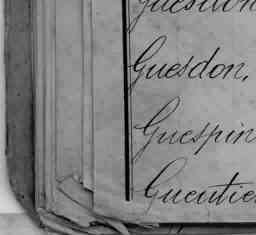 Guesdon,
Guespin
Gueutie